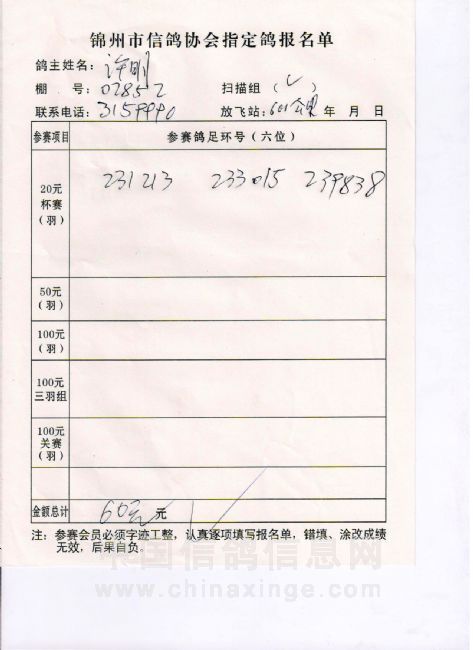 锦州市信鸽协会指定鸽报名单
鸽主姓名：许明
棚 号：02852 扫描组（✓）
联系电话：3159990 放飞站：601公里 年 月 日
参赛项目 参赛鸽足环号（六位）
20元
杯赛
（羽）
231213 233015 239838
50元
（羽）
100元
（羽）
100元
三羽组
100元
关赛
（羽）
金额总计 60元 元
注：参赛会员必须字迹工整，认真逐项填写报名单，错填、涂改成绩
无效，后果自负。
中国信鸽信息网
www.chinaxinge.com